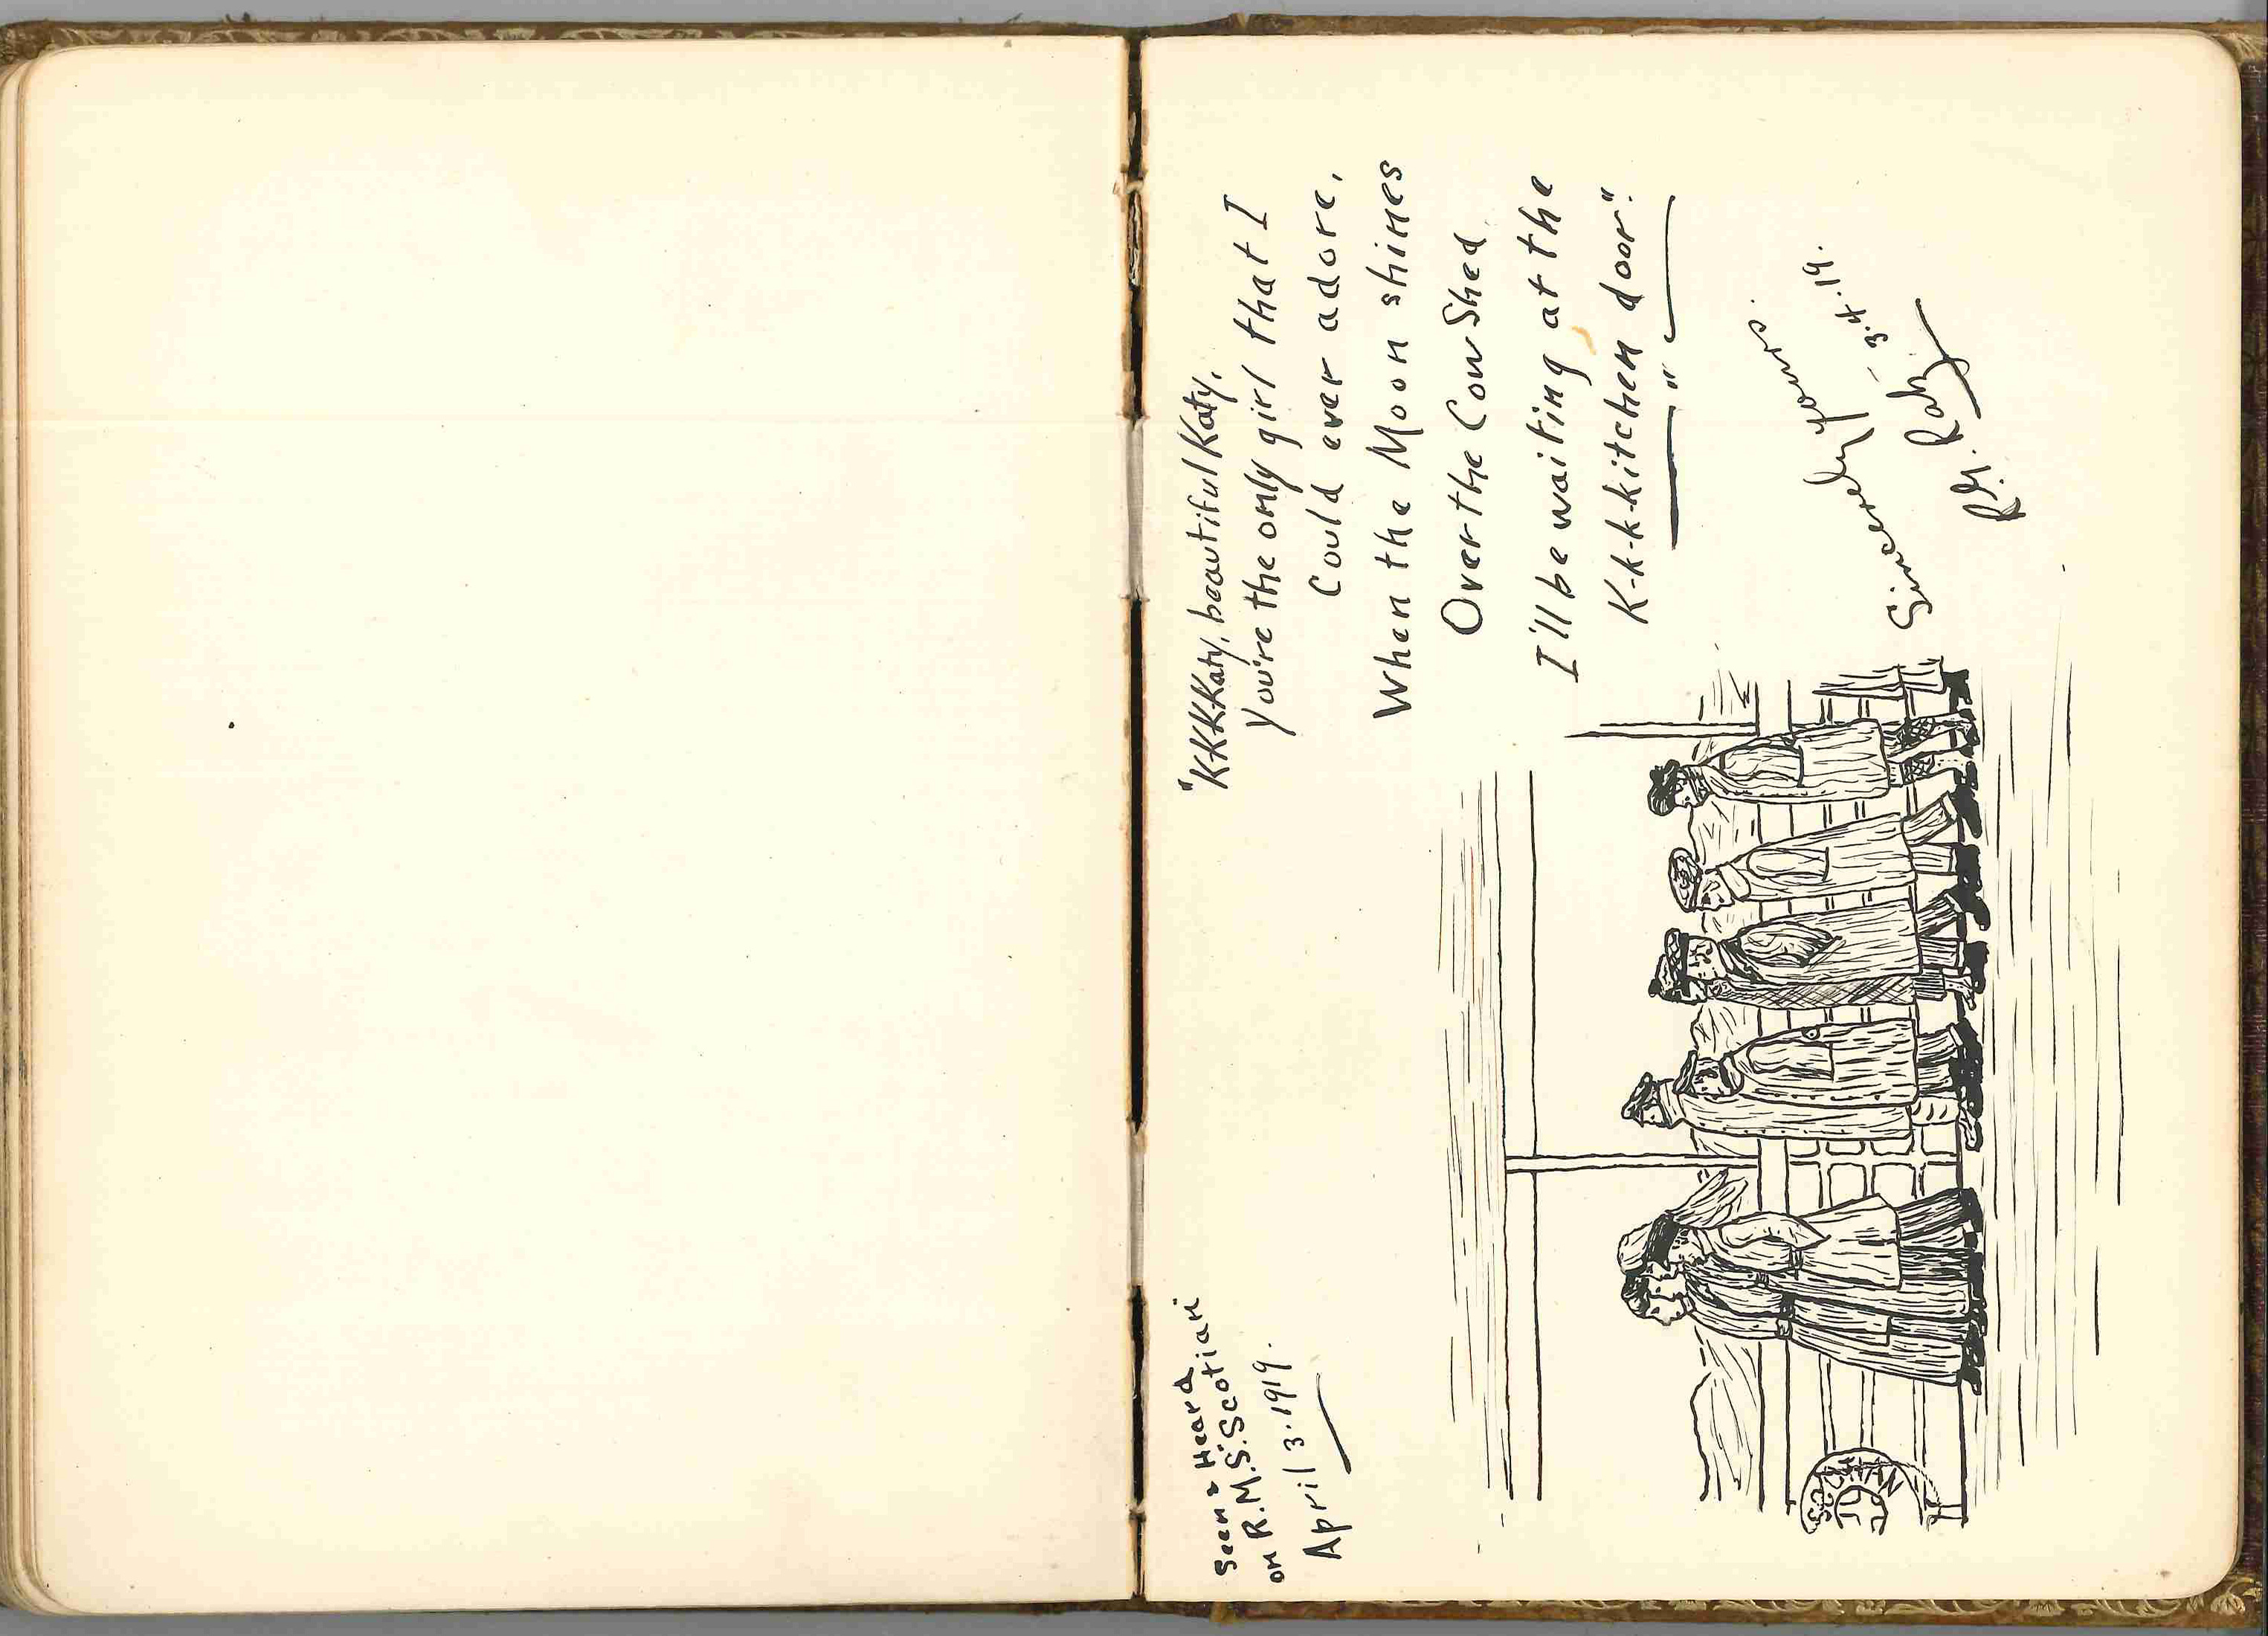 Seen & Heard
on R.M.S. "Scotian"
April 3. 1919.
"K-K-K-Katy, beautiful Katy,
You're the only girl that I
Could ever adore,
When the Moon shines
Over the Cow Shed
I'll be waiting at the
K-k-k-kitchen door".
Sincerely yours.
– 3.4.19.